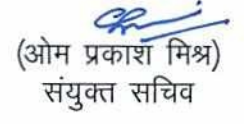 (ओम प्रकाश मिश्र)
संयुक्त सचिव